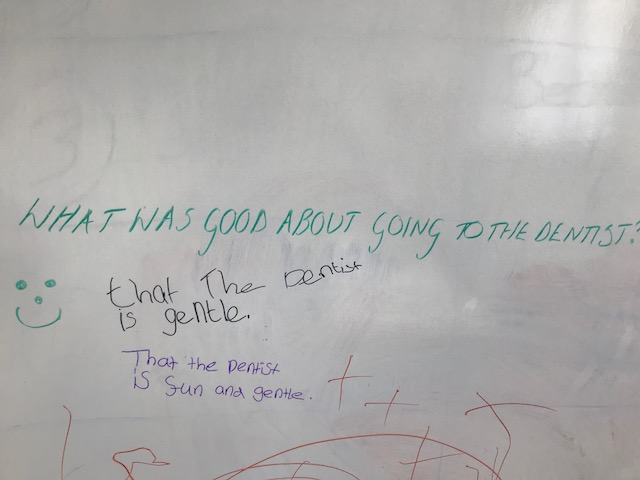 WHAT WAS GOOD ABOUT GOING TO THE DENTIST?
that The Dentist
is gentle.
That the Dentist
is fun and gentle.